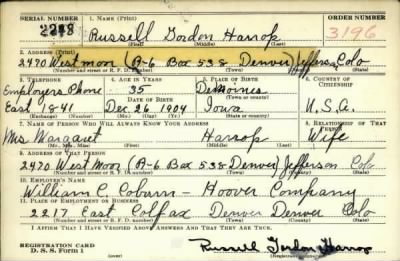 SERIAL NUMBER 1. NAME (Print) ORDER NUMBER
Russell Gordon Harrop 3196
(First) (Middle) (Last)
2. ADDRESS (Print)
2470 West moor (A-6 Box 538 Denver) Jefferson Colo
(Number and street or R. F. D. number) (Town) (County) (State)
3. TELEPHONE 4. AGE IN YEARS 5. PLACE OF BIRTH 6. COUNTRY OF CITIZENSHIP
Employers Phone 35 Desmoines
DATE OF BIRTH (Town or county)
East 1841 Dec 26 1904 Iowa U.S.A.
(Exchange) (Number) (Mo.) (Day) (Yr.) (State or country)
7. NAME OF PERSON WHO WILL ALWAYS KNOW YOUR ADDRESS 8. RELATIONSHIP OF THAT PERSON
Mrs Margaret Harrop Wife
(Mr., Mrs., Miss) (First) (Middle) (Last)
9. ADDRESS OF THAT PERSON
2470 West Moor (A-6 Box 538 Denver) Jefferson Colo
(Number and street or R. F. D. number) (Town) (County) (State)
10. EMPLOYER'S NAME
William C. Coburn - Hoover Company
11. PLACE OF EMPLOYMENT OR BUSINESS
2217 East Colfax Denver Denver Colo
(Number and street or R. F. D. number) (Town) (County) (State)
I AFFIRM THAT I HAVE VERIFIED ABOVE ANSWERS AND THAT THEY ARE TRUE.
REGISTRATION CARD
D. S. S. FORM 1 Russell Gordon Harrop
(Registrant's signature)